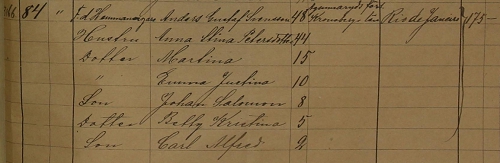 84 " F.d. Hemmansägare Anders Gustaf Svensson 48 Kronobergs län Rio de Janeiro 175-
Hustru Anna Stina Petersdotter 44
Dotter Martina 15
" Emma Justina 10
Son Johan Salomon 8
Dotter Betty Kristina 5
Son Carl Alfred 2